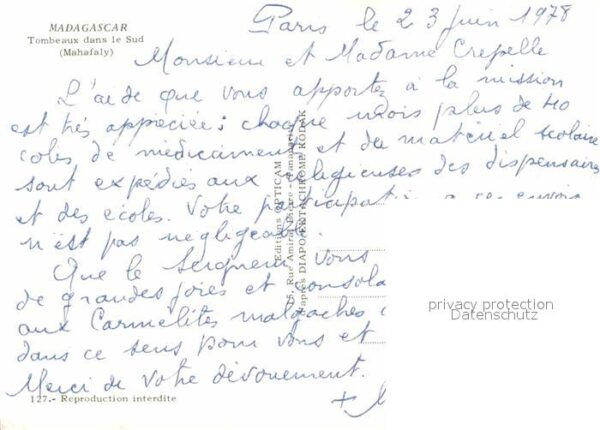 MADAGASCAR
Tombeaux dans le Sud
(Mahafaly)
Paris le 23 Juin 1978
Monsieur et Madame Crepelle
L'aide que vous apportez à la mission
est très appréciée; chaque mois plus de 40
colis de médicament et du matériel scolaire
sont expédiés aux religieuses des dispensaires
et des écoles. Votre participat à ces envois
n'est pas négligeable.
Que le Seigneur vous
de grandes joies et consola
aux Carmélites malgaches
dans ce sens pour vous et
Merci de votre dévouement.
+
127.- Reproduction interdite
Editions OPTICAM
15, Rue Amiral Pierre - Tananarive
d'après DIAPO EKTACHROME KODAK
privacy protection
Datenschutz